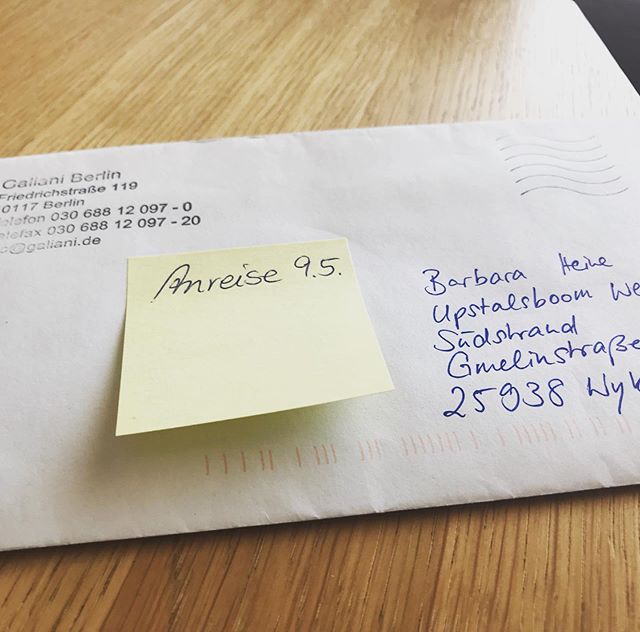 Galiani Berlin
Friedrichstraße 119
10117 Berlin
Telefon 030 688 12 097 - 0
Telefax 030 688 12 097 - 20
@galiani.de
Anreise 9.5.
Barbara Heine
Upstalsboom We
Südstrand
Gmelinstraße
25938 Wyk